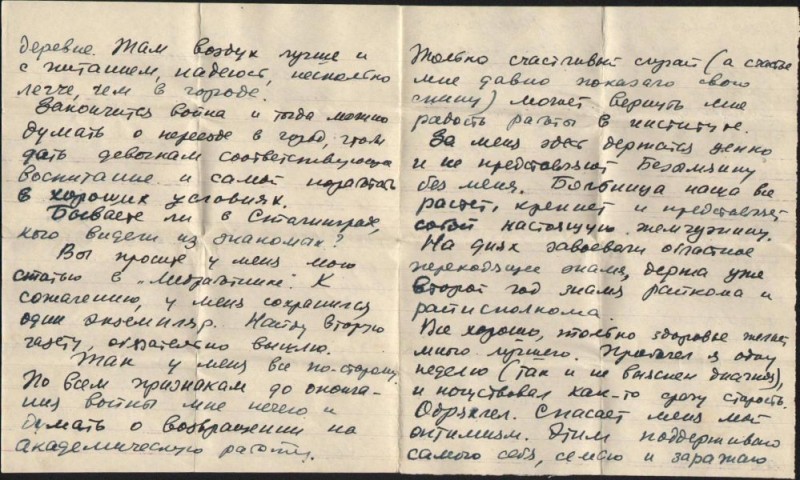 деревне. Там воздух лучше и
с питанием, надеюсь, несколько
легче, чем в городе.
Закончится война и тогда можно
думать о переезде в город, чтоб
дать девочкам соответствующее
воспитание и самой поработать
в хороших условиях.
Бываете ли в Сталинграде,
кого видели из знакомых?
Вы просите у меня мою
статью в „Медработнике". К
сожалению, у меня сохранился
один экземпляр. Найду вторую
газету, обязательно вышлю.
Так у меня все по-старому.
По всем признакам до оконча-
ния войны мне нечего и
думать о возвращении на
академическую работу.
Только счастливый случай (а счастье
мне давно показало свою
спину) может вернуть мне
радость работы в институте.
За меня здесь держатся цепко
и не представляют Безымянку
без меня. Больница наша все
растет, крепнет и представляет
собой настоящую жемчужину.
На днях завоевали областное
переходящее знамя, держа уже
второй год знамя райкома и
райисполкома.
Все хорошо, только здоровье желает
много лучшего. Пролежал я одну
неделю (так и не выяснен диагноз),
и почувствовал как-то сразу старость.
Обрюзглел. Спасает меня мой
оптимизм. Этим поддерживаю
самого себя, семью и заражаю